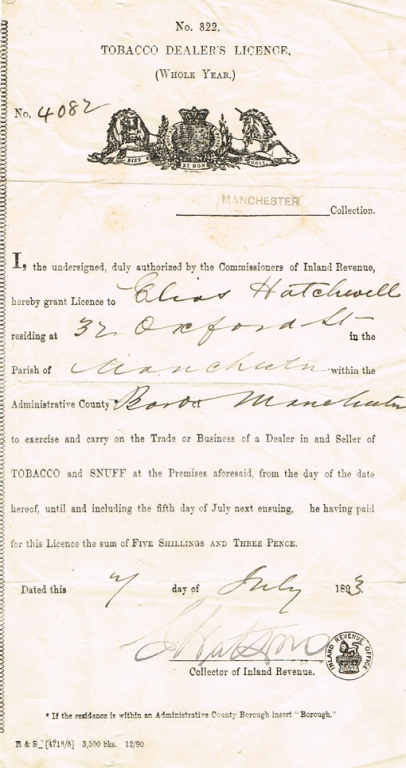 No. 322.
TOBACCO DEALER'S LICENCE,
(WHOLE YEAR.)
No. 4082
DIEU ET MON DROIT
MANCHESTER Collection.
I, the undersigned, duly authorized by the Commissioners of Inland Revenue,
hereby grant Licence to Elias Hatchwell
residing at 32 Oxford St in the
Parish of Manchester within the
Administrative County * Boro' of Manchester
to exercise and carry on the Trade or Business of a Dealer in and Seller of
TOBACCO and SNUFF at the Premises aforesaid, from the day of the date
hereof, until and including the fifth day of July next ensuing, he having paid
for this Licence the sum of FIVE SHILLINGS AND THREE PENCE.
Dated this 7 day of July 1893.
Watson
INLAND REVENUE OFFICE
Collector of Inland Revenue.
* If the residence is within an Administrative County Borough insert "Borough."
R & S_ [471s/5] 3,500 bks. 12/90